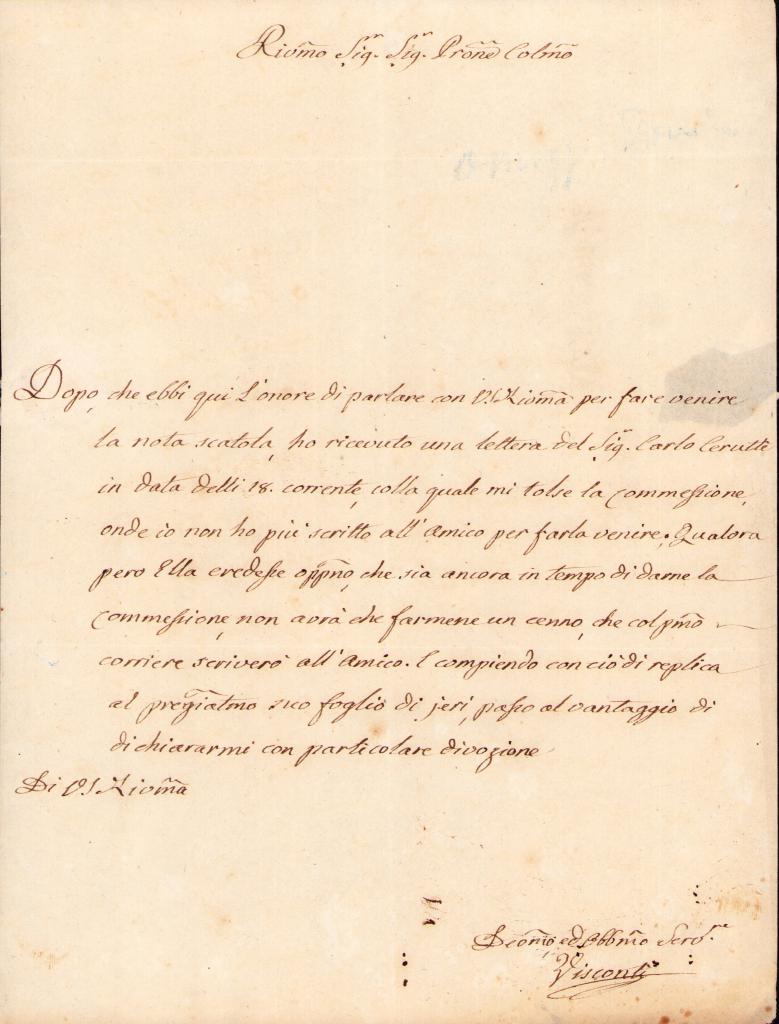 Rivmo Sigr. Sigr. Prone Colmo
Dopo, che ebbi qui l'onore di parlare con V.S. Rivma per fare venire
la nota scatola, ho ricevuto una lettera del Sigr. Carlo Cerutti
in data delli 18. corrente, colla quale mi tolse la commessione,
onde io non ho più scritto all'Amico per farla venire. Qualora
però Ella credesse oppno, che sia ancora in tempo di darne la
commessione, non avrà che farmene un cenno, che col pmo
corriere scriverò all'Amico. E compiendo con ciò di replica
al pregiatmo suo foglio di jeri, passo al vantaggio di
dichiararmi con particolare divozione
Di V.S. Rivma
Devmo ed Obbmo Servre.
Visconti